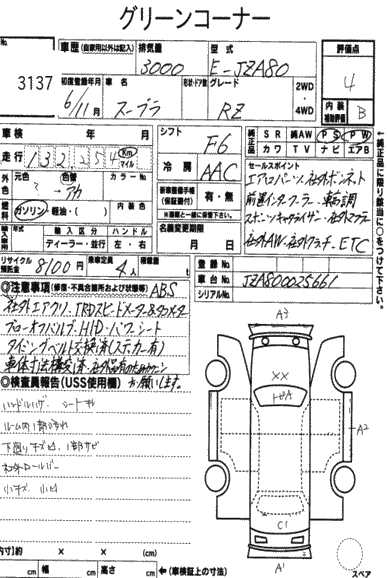 グリーンコーナー
No.
3137
車歴(自家用以外は記入)
排気量
型式
評価点
3000
E-JZA80
4
初度登録年月
車名
形状・ドア数
グレード
2WD
・
4WD
6/11月
スープラ
RZ
内装
補助評価
B
車検 年 月
シフト
F6
純正品
SR 純AW PS PW
カワ TV ナビ エアB
走行 132,254 Km マイル
冷房
AAC
セールスポイント
エアロパーツ、社外ボンネット
前置インタクーラー、車高調
社外AW、社外クラッチ、ETC
外色
元色
色替
カラーNo
?→アカ
新車整備手帳
(保証書付)
有・無
※書類と一緒に保管して下さい。
燃料
ガソリン・軽油・( )
内装色
名義変更期限
月 日
輸入車用
年式
輸入区分
ハンドル
ディーラー・並行
左・右
純正品に限り該当に○をつけて下さい。
リサイクル預託金
8100円
乗車定員
4人
積載量
t
登録No.
車台No.
JZA800025661
シリアルNo.
◎注意事項(修復・不具合箇所および状態等)ABS
社外エアクリ、TRDスピードメーター
ブローオフバルブ、HID、パワーシート
タイミングベルト交換済(ステッカー有)
車体寸法構変済、
お願いします。
◎検査員報告(USS使用欄)
下廻りキズ凹、1部サビ
ロールバー
小キズ 小凹
A3
XX
A2
C1
A1
内寸) × × (cm)
cm 幅 cm 高さ cm ←(車検証上の寸法)
スペア